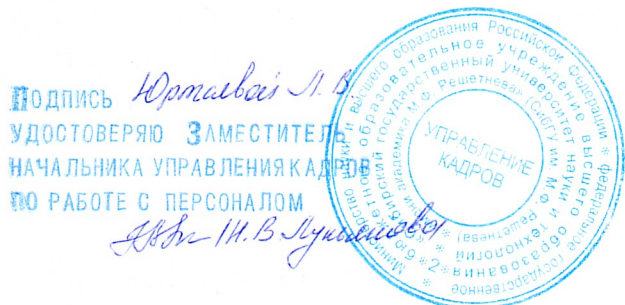 Подпись Юртаевой Л.В.
УДОСТОВЕРЯЮ ЗАМЕСТИТЕЛЬ
НАЧАЛЬНИКА УПРАВЛЕНИЯ КАДРОВ
ПО РАБОТЕ С ПЕРСОНАЛОМ
Н.В.
УПРАВЛЕНИЕ
КАДРОВ
высшего образования Российской Федерации * федеральное государственное
образовательное учреждение высшего образования
государственный университет науки и технологий
имени академика М.Ф. Решетнева» (СибГУ им. М.Ф. Решетнева)